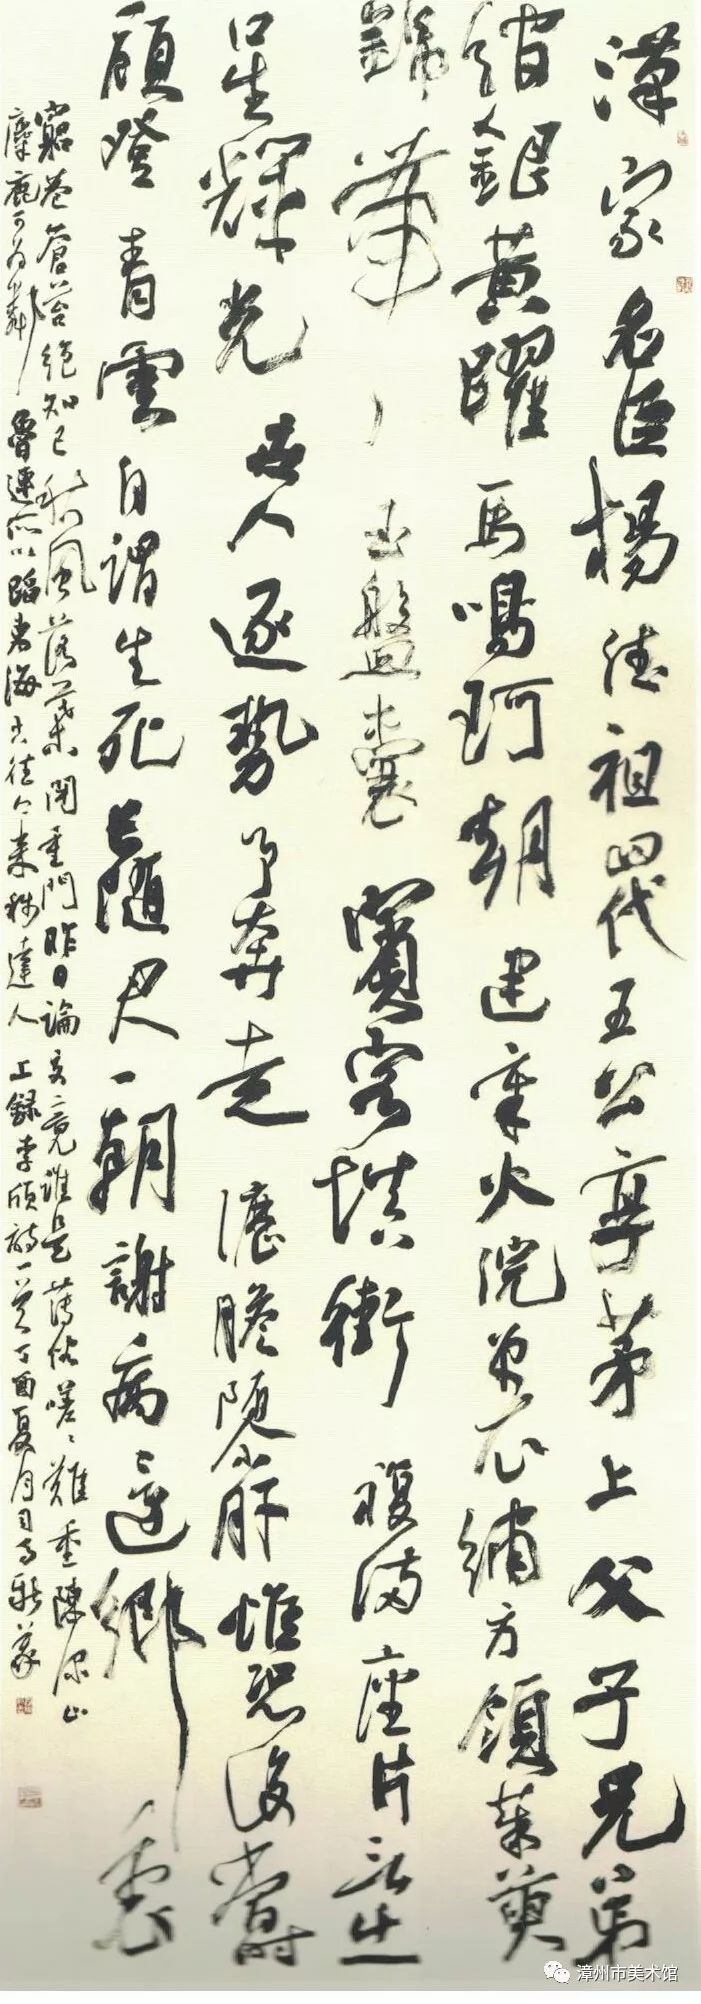 漢家名臣楊德祖四代五公享茅土父子兄弟
綰銀黃躍馬鳴珂朝建章火浣單衣繡方領茱萸
錦帶玉盤囊賓客填街復滿座片言出
口生輝光世人逐勢爭奔走瀝膽隨肝惟恐後當時
顧登青雲自謂生死長隨君一朝謝病還鄉里
窮巷蒼苔絕知己秋風落葉閉重門昨日論交竟誰是薄俗嗟嗟難重陳深山
麋鹿可為鄰魯連所以蹈東海古往今來稱達人 上錄李頎詩一首丁酉夏月
漳州市美术馆